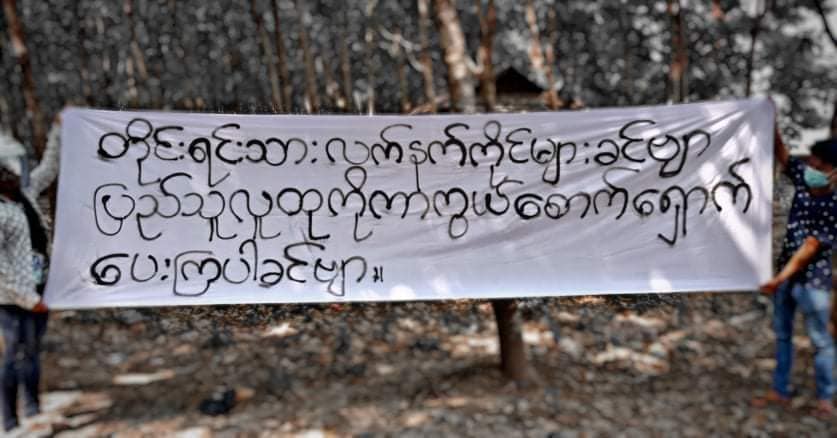 တိုင်းရင်းသားလက်နက်ကိုင်များခင်ဗျာ
ပြည်သူလူထုကိုကာကွယ်စောက်ရှောက်
ပေးကြပါခင်ဗျာ။